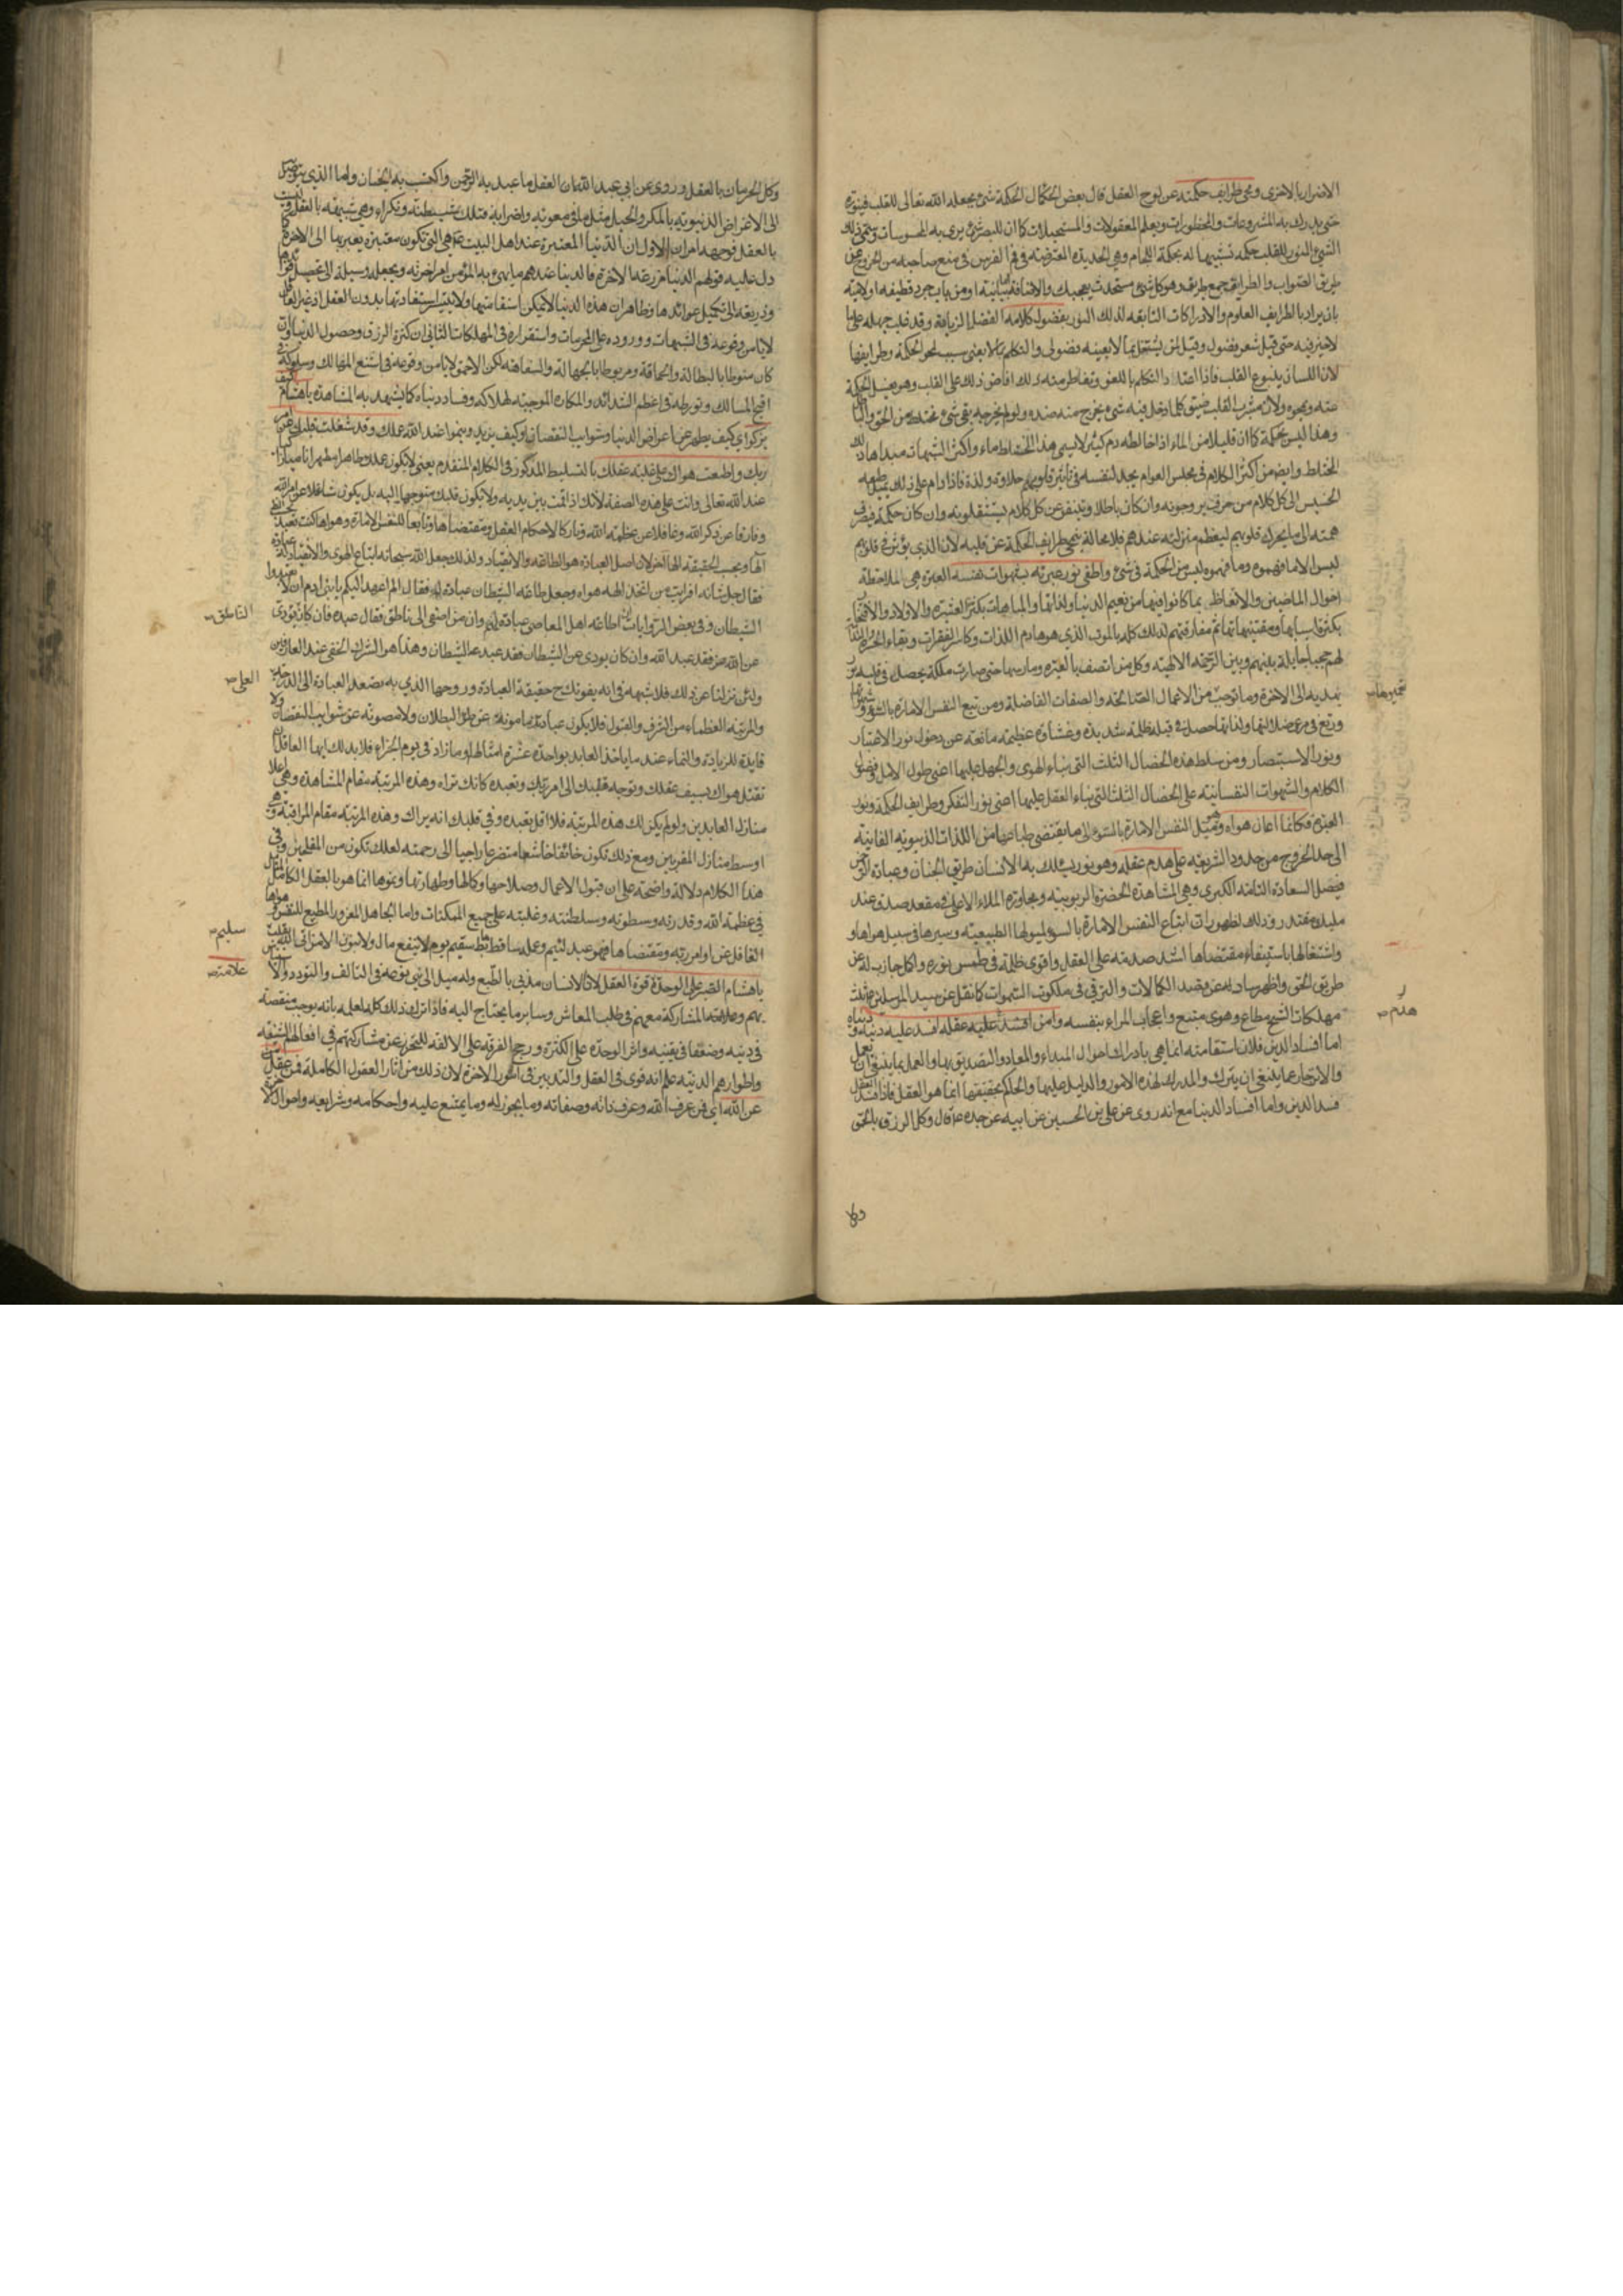 الاضرار بالاخرى ومحى طرايف حكمته عن لوح العقل قال بعض الحكماء الحكمة شئ يجعله الله تعالى للقلب فينوره
حتى يدرك به المشروعات والمحظورات ويعلم المعقولات والمستحيلات كما ان للبصر شئ يرى به المحسوسات وسمى ذلك
الشئ النور للقلب حكمة تشبيها له بحكمة اللجام وهي الحديدة المعترضة في فم الفرس في منع صاحبه من الخروج عن
طريق الصواب والطرايف جمع طريف وهو كل شئ مستحدث يعجبك والاضافة بيانية او من باب جرد قطيفة او لامية
بان يراد بالطرايف العلوم والادراكات التابعة لذلك النور بفضول كلامه الفضل الزيادة وقد غلب جمعه على ما
لا خير فيه حتى قيل شعر فضول وقيل لمن يشتغل بما لا يعينه فضولى والتكلم بما لا يعنى سبب لمحو الحكمة وطرايفها
لان اللسان ينبوع القلب فاذا اعتاد التكلم باللغو وتقاطر منه ذلك افاض ذلك على القلب وهو يغسل الحكمة
عنه ويمحوه ولان مشرب القلب ضيق كلما دخل فيه شئ يخرج منه ضده ولو لم يخرجه بقى شئ مختلط من الحق والباطل
وهذا ليس بحكمة كما ان قليلا من الماء اذا خالطه دم كثير لا يسمى هذا المختلط ماء واكثر الشبهات مبداها ذلك
الخلط وايضا من اكثر الكلام في مجلس العوام يجد لنفسه في تاثير قلوبهم حلاوة ولذة فاذا دام على ذلك يميل طبعه
الخسيس الى كل كلام من حرف يروجونه وان كان باطلا ويتنفر عن كل كلام يستثقلونه وان كان حكمة فيصرف
همته الى ما يحرك قلوبهم ليعظم منزلته عندهم فلا محالة يمحى طرايف الحكمة عن قلبه لان الذي يؤثر في قلوبهم
ليس الا ما فهموه وما فهموه ليس من الحكمة في شئ واطفى نور عبرته بشهوات نفسه العبرة هي الملاحظة
احوال الماضين والاتعاظ بما كانوا فيها من نعيم الدنيا ولذاتها والمباهات بكثرة العشيرة والاولاد والافتخار
بكثرة اسبابها ومقتنياتها ثم مفارقتهم لذلك كله بالموت الذي هو هادم اللذات وكاسر الفقرات وبقاء الحسرة والندامة
لهم حجبا حايلة بينهم وبين الرحمة الالهية وكل من اتصف بالعبرة ومارسها حتى صارت ملكة يحصل في قلبه نور
يهديه الى الاخرة وما توجبه من الاعمال الصالحة والصفات الفاضلة ومن تبع النفس الامارة بالسوء وشهواتها
ورتع في مرعى ضلالتها ولذاتها حصل في قلبه ظلمة شديدة وغشاوة عظيمة مانعة عن دخول نور الاعتبار
ونور الاستبصار ومن سلط هذه الخصال الثلث التي بناء الهوى والجهل عليها اعنى طول الامل وفضول
الكلام والشهوات النفسانية على الخصال الثلث التي بناء العقل عليها اعنى نور التفكر وطرايف الحكمة ونور
العبرة فكانما اعان هواه وهو ميل النفس الامارة بالسوء الى ما يقتضى طباعها من اللذات الدنيوية الفانية
الى حد الخروج من حدود الشريعة على هدم عقله وهو نور يسلك به الانسان طريق الجنان وعبادة الرحمن
فيصل السعادة التامة الكبرى وهي المشاهدة الحضرة الربوبية ومجاورة الملاء الاعلى في مقعد صدق عند
مليك مقتدر وذلك لظهور ان اتباع النفس الامارة بالسوء لميولها الطبيعية وسيرها في سبيل هواها و
واشتغالها باستيفاء مقتضاها اشد صدمة على العقل واقوى ظلمة في طمس نوره واكمل جاذب له عن
طريق الحق واظهر ساد له عن قصد الكمالات والترقي في ملكوت السموات كما نقل عن سيد المرسلين ثلث
مهلكات شح مطاع وهوى متبع واعجاب المرء بنفسه ومن افسد عليه عقله افسد عليه دينه ودنياه
اما افساد الدين فلان استقامته انما هي بادراك احوال المبداء والمعاد والتصديق بها والعمل بما ينبغي ان يعمل
والانزجار عما ينبغي ان يترك والمدرك لهذه الامور والدليل عليها والحاكم بحقيقتها انما هو العقل فاذا فسد العقل
فسد الدين واما افساد الدنيا مع انه روى عن على بن الحسين عن ابيه عن جده ع قال وكل الرزق بالحمق
هدم
وكل
وكل الحرمان بالعقل وروى عن ابي عبد الله ان العقل ما عبد به الرحمن واكتسب به الجنان واما الذي يتوصل
الى الاغراض الدنيوية بالمكر والحيل مثل ما في معوية واضرابه فتلك شيطنة ونكراء وهي شبيهة بالعقل وليست
بالعقل فوجهه امران الاول ان الدنيا المعتبرة عند اهل البيت ع هي التي تكون معتبرة يعبر بها الى الاخرة كما
دل عليه قولهم الدنيا مزرعة الاخرة فالدنيا عندهم ما يهئ به المؤمن امر اخرته ويجعله وسيلة الى تحصيل ثمراتها
وذريعة الى تكميل عوائدها وظاهر ان هذه الدنيا لا يمكن استقامتها ولا يتيسر استفادتها بدون العقل اذ غير العاقل
لا يامن وقوعه في الشبهات ووروده على المحرمات واستقراره في المهلكات الثاني ان كثرة الرزق وحصول الدنيا وان
كان منوطا بالبطالة والحماقة ومربوطا بالجهالة والسفاهة لكن الاحمق لا يامن وقوعه في اشنع المهالك وسلوكه في
اقبح المسالك وتورطه في اعظم الشدائد والمكاره الموجبة لهلاكه وفساد دنياه كما يشهد به المشاهدة يا هشام كيف
يزكو اي كيف يطهر عن اعراض الدنيا وشوايب النقصان او كيف يزيد وينمو عند الله عملك وقد شغلت قلبك عن امر
ربك واطعت هواك على غلبة عقلك بالتسليط المذكور في الكلام المتقدم يعنى لا يكون عملك طاهرا مطهرا ناميا زاكيا
عند الله تعالى وانت على هذه الصفة لانك اذا قمت بين يديه ولا يكون قلبك متوجها اليه بل يكون شاغلا عن امر الله
وفارغا عن ذكر الله وغافلا عن عظمة الله وتاركا لاحكام العقل ومقتضاها وتابعا للنفس الامارة وهواها كنت تعبد
الها وبحسب الحقيقة الها اخر لان اصل العبادة هو الطاعة والانقياد ولذلك جعل الله سبحانه اتباع الهوى والانقياد له عبادة
فقال جل شانه افرايت من اتخذ الهه هواه وجعل طاعة الشيطان عبادة له فقال الم اعهد اليكم يا بني ادم ان لا تعبدوا
الشيطان وفي بعض الروايات ان اطاعة اهل المعاصي عبادة لهم وان من اصغى الى ناطق فقد عبده فان كان يؤدى
الناطق
عن الله عز فقد عبد الله وان كان يودى عن الشيطان فقد عبد الشيطان وهذا هو الشرك الخفى عند العارفين
العلى
ولئن نزلنا عن ذلك فلا شبهة في انه يفوتك ح حقيقة العبادة وروحها الذي به يصعد العبادة الى الدرجة
والمرتبة العظماء من الشرف والقبول فلا يكون عبادتك مامونة عن طرق البطلان ولا مصونة عن شوايب النقصان ولا
قابلة للزيادة والنماء عند ما ياخذ العابد بواحدة عشرة امثالها وما زاد في يوم الجزاء فلا بد لك ايها العاقل ان
تقتل هواك بسيف عقلك وتوجه قلبك الى امر ربك وتعبده كانك تراه وهذه المرتبة مقام المشاهدة وهي اعلا
منازل العابدين ولو لم يكن لك هذه المرتبة فلا اقل تعبده وفي قلبك انه يراك وهذه المرتبة مقام المراقبة وهي
اوسط منازل المقربين ومع ذلك تكون خائفا خاشعا متضرعا راجيا الى رحمته لعلك تكون من المفلحين وفي
هذا الكلام دلالة واضحة على ان قبول الاعمال وصلاحها وكمالها وطهارتها ونموها انما هو بالعقل الكامل المتامل
في عظمة الله وقدرته وسطوته وسلطنته وغلبته على جميع الممكنات واما الجاهل المغرور المطيع للنفس وهواها
الغافل عن اوامر ربه ومقتضاها فهو عبد لئيم وعمله ساقط سقيم يوم لا ينفع مال ولا بنون الا من اتى الله بقلب
سليم
يا هشام الصبر على الوحدة قوة العقل لان الانسان مدني بالطبع وله ميل الى بنى نوعه في التالف والتودد والاستيناس
علامة
بهم وعلاقة المشاركة معهم في طلب المعاش وساير ما يحتاج اليه فاذا ترك ذلك كله لعلمه بانه يوجب منقصة
في دينه وضعفا في يقينه واثر الوحدة على الكثرة ورجح الفرقة على الالفة للتحرز عن مشاركتهم في افعالهم الشنيعة
واطوارهم الدنية علم انه قوى في العقل والتدبير في امور الاخرة لان ذلك من اثار العقول الكاملة فمن عقل
عن الله اي فمن عرف الله وعرف ذاته وصفاته وما يجوز له وما يمتنع عليه واحكامه وشرايعه واحوال الاخرة